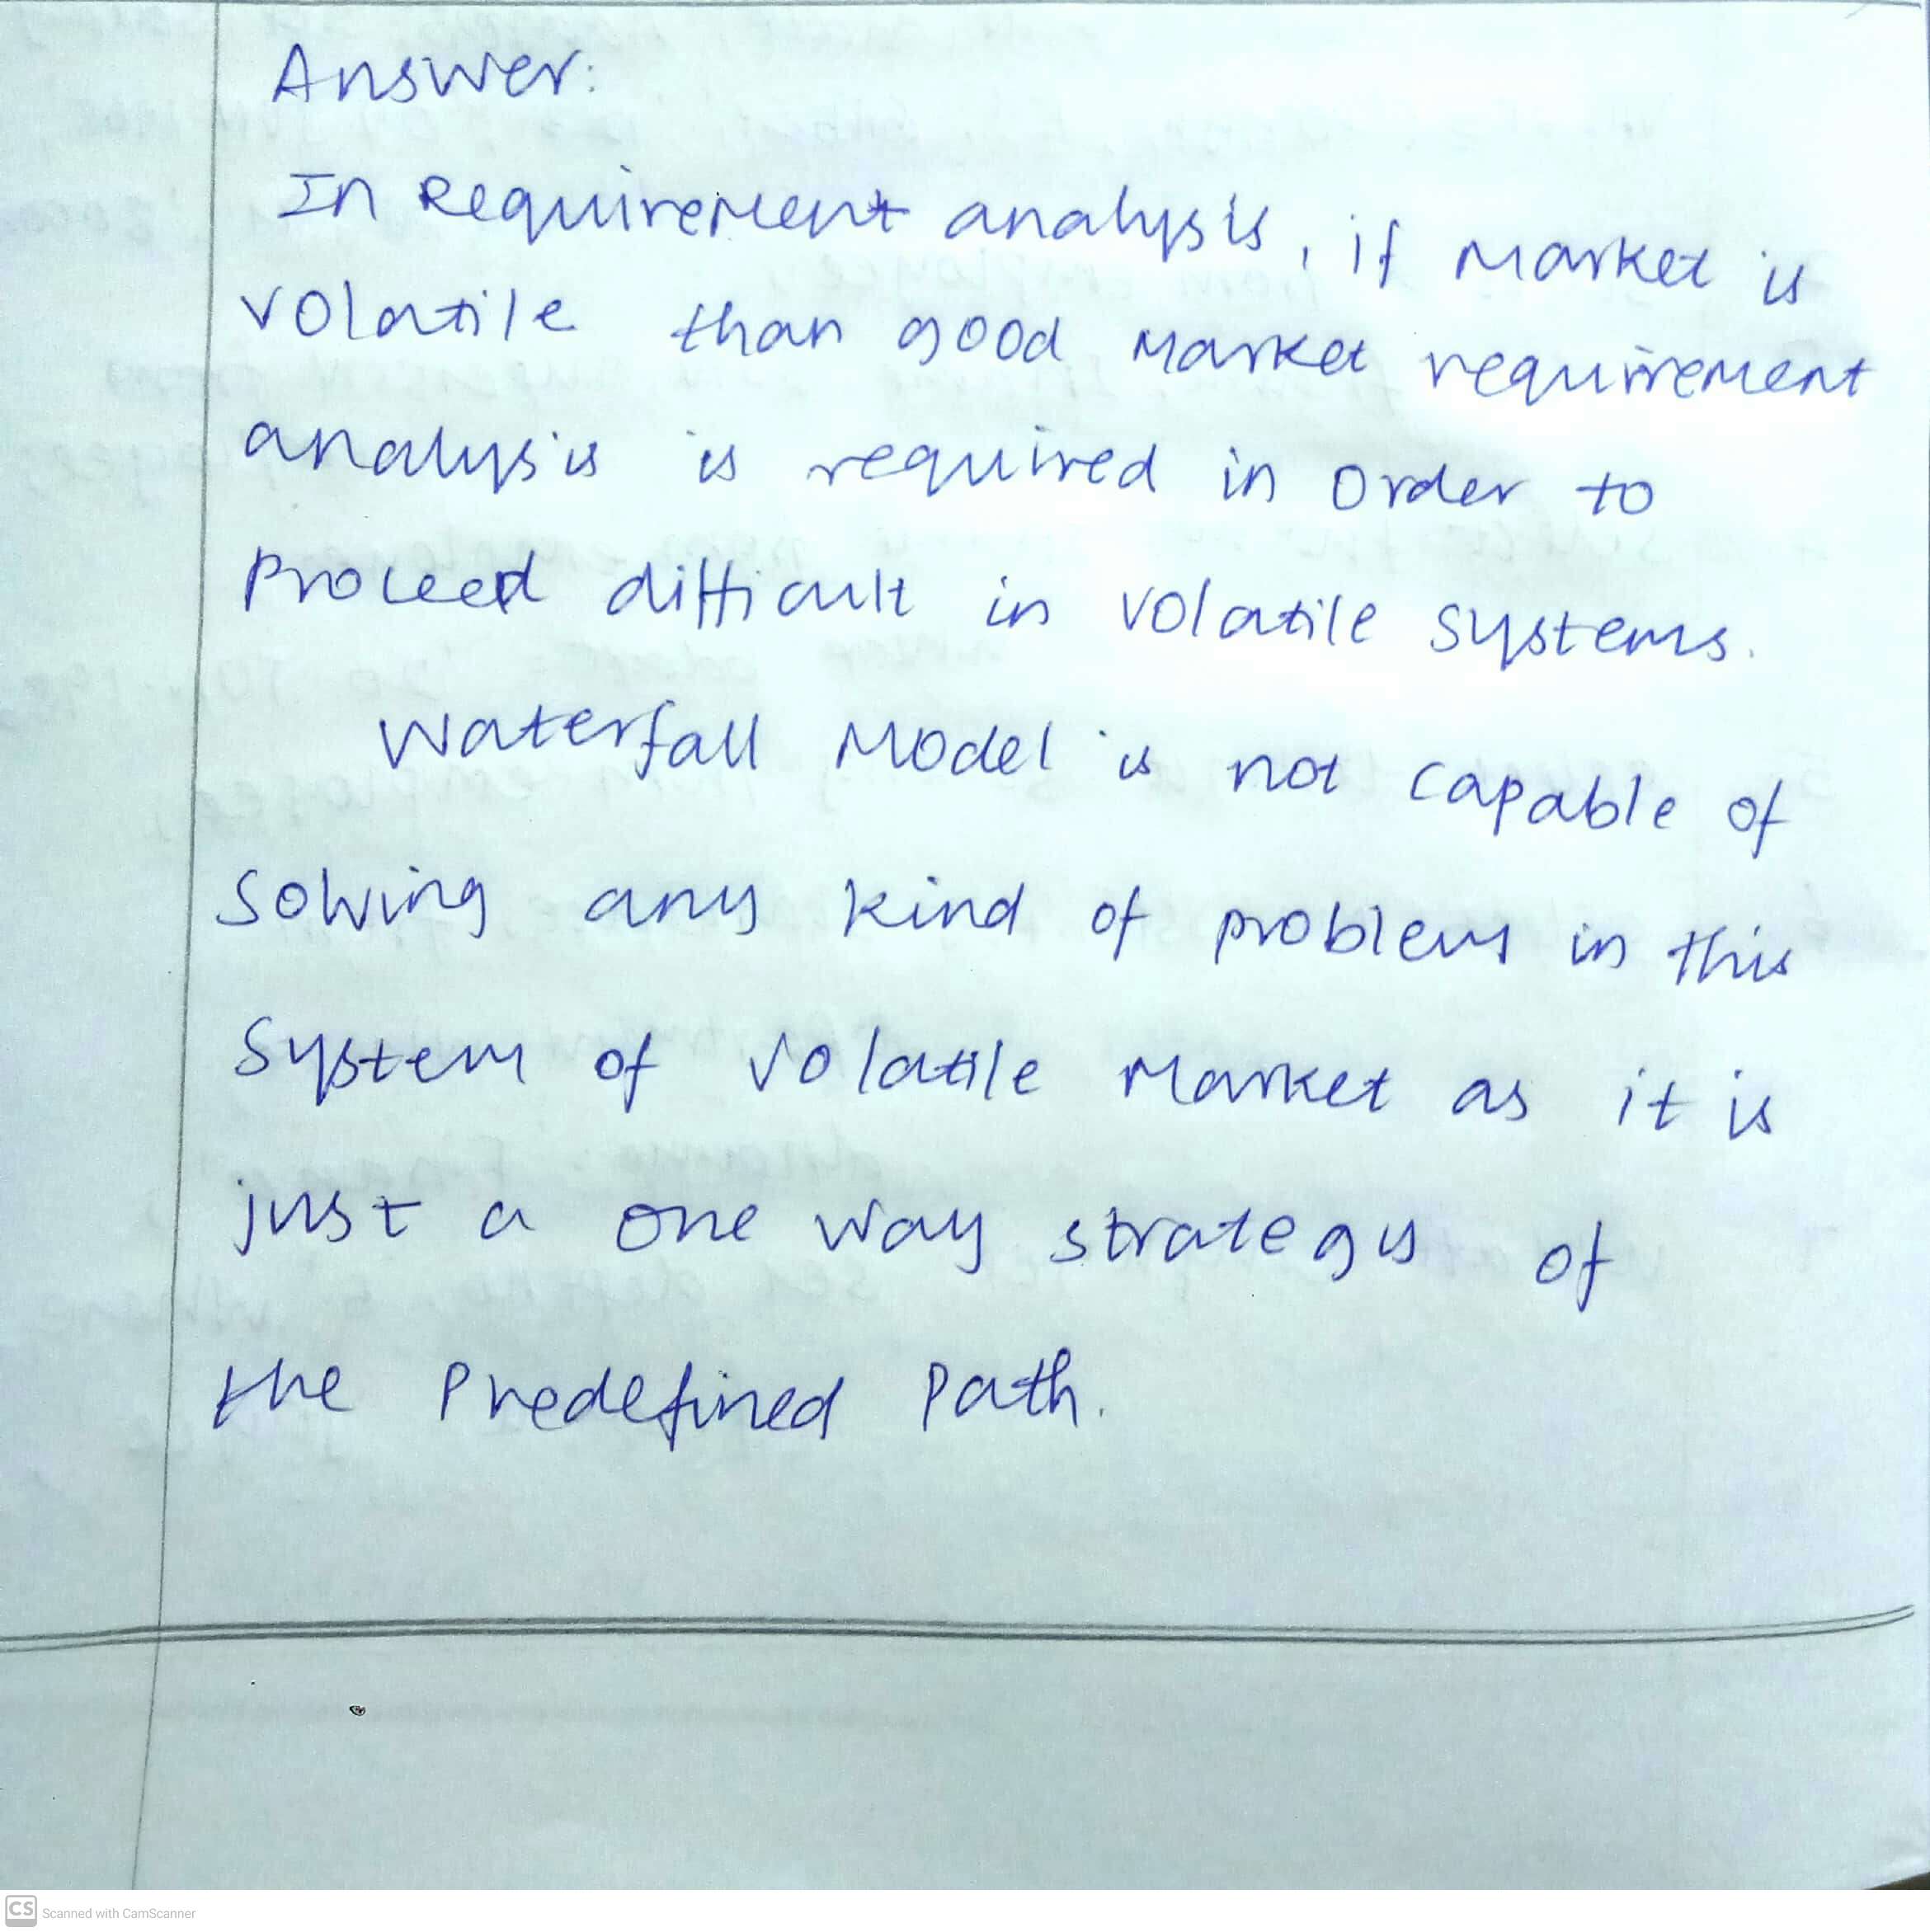 Answer:
In Requirement analysis, if Market is
volatile than good Market requirement
analysis is required in order to
proceed difficult in volatile systems.
Waterfall Model is not capable of
solving any kind of problem in this
system of volatile Market as it is
just a one way strategy of
the Predefined path.
CS Scanned with CamScanner